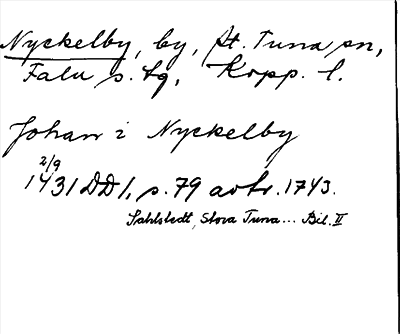 Nyckelby, by, St. Tuna sn,
Falu s. tg, Kopp. l.
Johan i Nyckelby
2/9
1431 DD 1, s. 79 avtr. 1743.
Sahlstedt, Stora Tuna... Bil. II